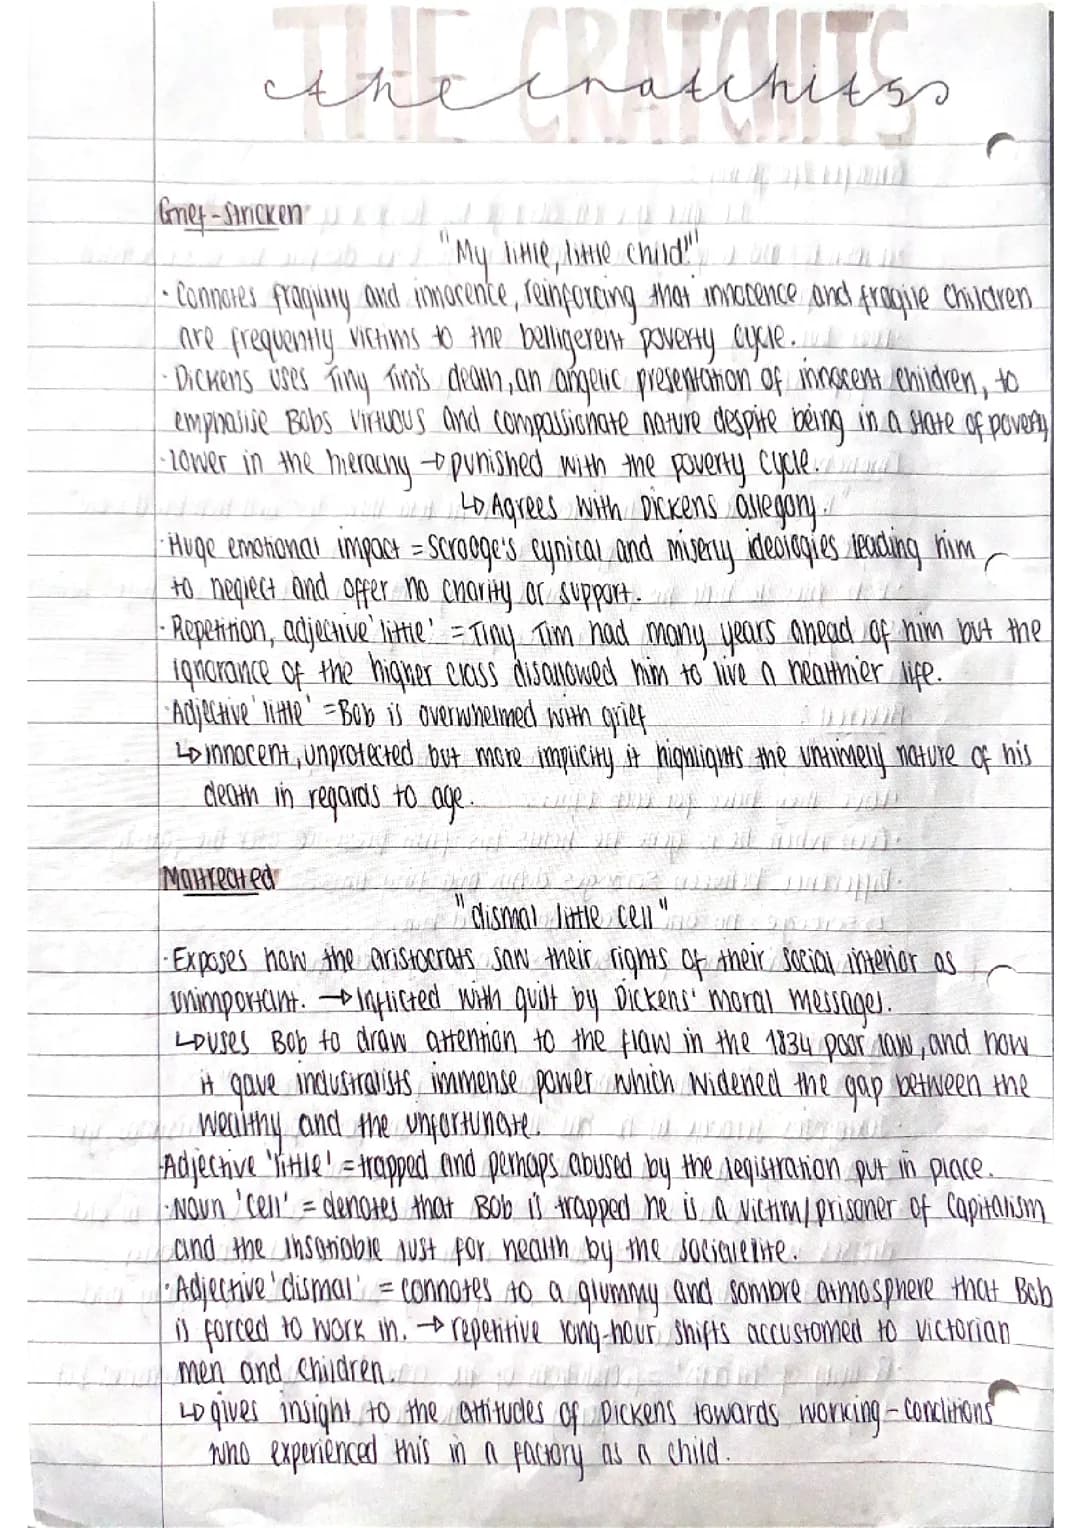 THE CRATCHITS
the cratchits
Grief-stricken
"My little, little child!"
· Connotes fragility and innocence, reinforcing that innocence and fragile children
are frequently victims to the belligerent poverty cycle.
· Dickens uses Tiny Tim's death, an angelic presentation of innocent children, to
emphasise Bobs virtuous and compassionate nature despite being in a state of poverty
· lower in the hierachy → punished with the poverty cycle.
↳ Agrees with Dickens allegory.
· Huge emotional impact = Scrooge's cynical and miserly ideologies leading him
to neglect and offer no charity or support.
· Repetition, adjective 'little' = Tiny Tim had many years ahead of him but the
ignorance of the higher class disallowed him to live a healthier life.
· Adjective 'little' = Bob is overwhelmed with grief
↳ innocent, unprotected but more implicity it highlights the untimely nature of his
death in regards to age.
Maltreated
"dismal little cell"
· Exposes how the aristocrats saw their rights of their social interior as
unimportant. → Inflicted with guilt by Dickens' moral messages.
↳ uses Bob to draw attention to the flaw in the 1834 poor law, and how
it gave industralists immense power which widened the gap between the
wealthy and the unfortunate.
· Adjective 'little' = trapped and perhaps abused by the registration put in place.
· Noun 'cell' = denotes that Bob is trapped he is a victim/prisoner of Capitalism
and the insatiable lust for health by the social elite.
· Adjective 'dismal' = connotes to a glummy and sombre atmosphere that Bob
is forced to work in. → repetitive long-hour shifts accustomed to victorian
men and children.
↳ gives insight to the attitudes of Dickens towards working-conditions
who experienced this in a factory as a child.